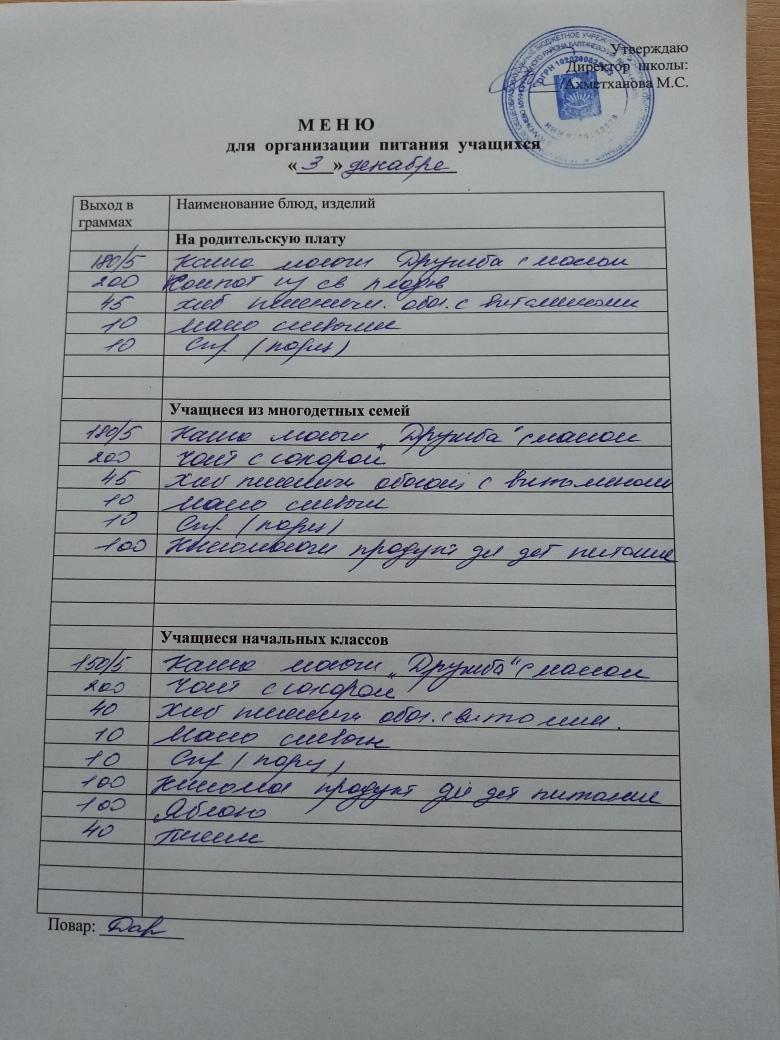 Утверждаю
Директор школы:
/Ахметханова М.С.
М Е Н Ю
для организации питания учащихся
« 3 » декабре
Выход в граммах Наименование блюд, изделий
На родительскую плату
180/5 Каша молочн Дружба с маслом
200 Компот из св плодов
45 хлеб пшеничн. обог. с витаминами
10 масло сливочн
10 Сыр (порц)
Учащиеся из многодетных семей
180/5 Каша молочн „Дружба“ с маслом
200 Чай с сахаром
45 Хлеб пшеничн обогащ с витаминами
10 масло сливочн
10 Сыр (порц)
100 Кисломолочн продукт для дет питание
Учащиеся начальных классов
150/5 Каша молочн „Дружба“ с маслом
200 Чай с сахаром
40 Хлеб пшеничн обог. с витамин.
10 Масло сливочн
10 Сыр (порц)
100 Кисломол продукт для дет питание
100 Яблоко
40
Повар: